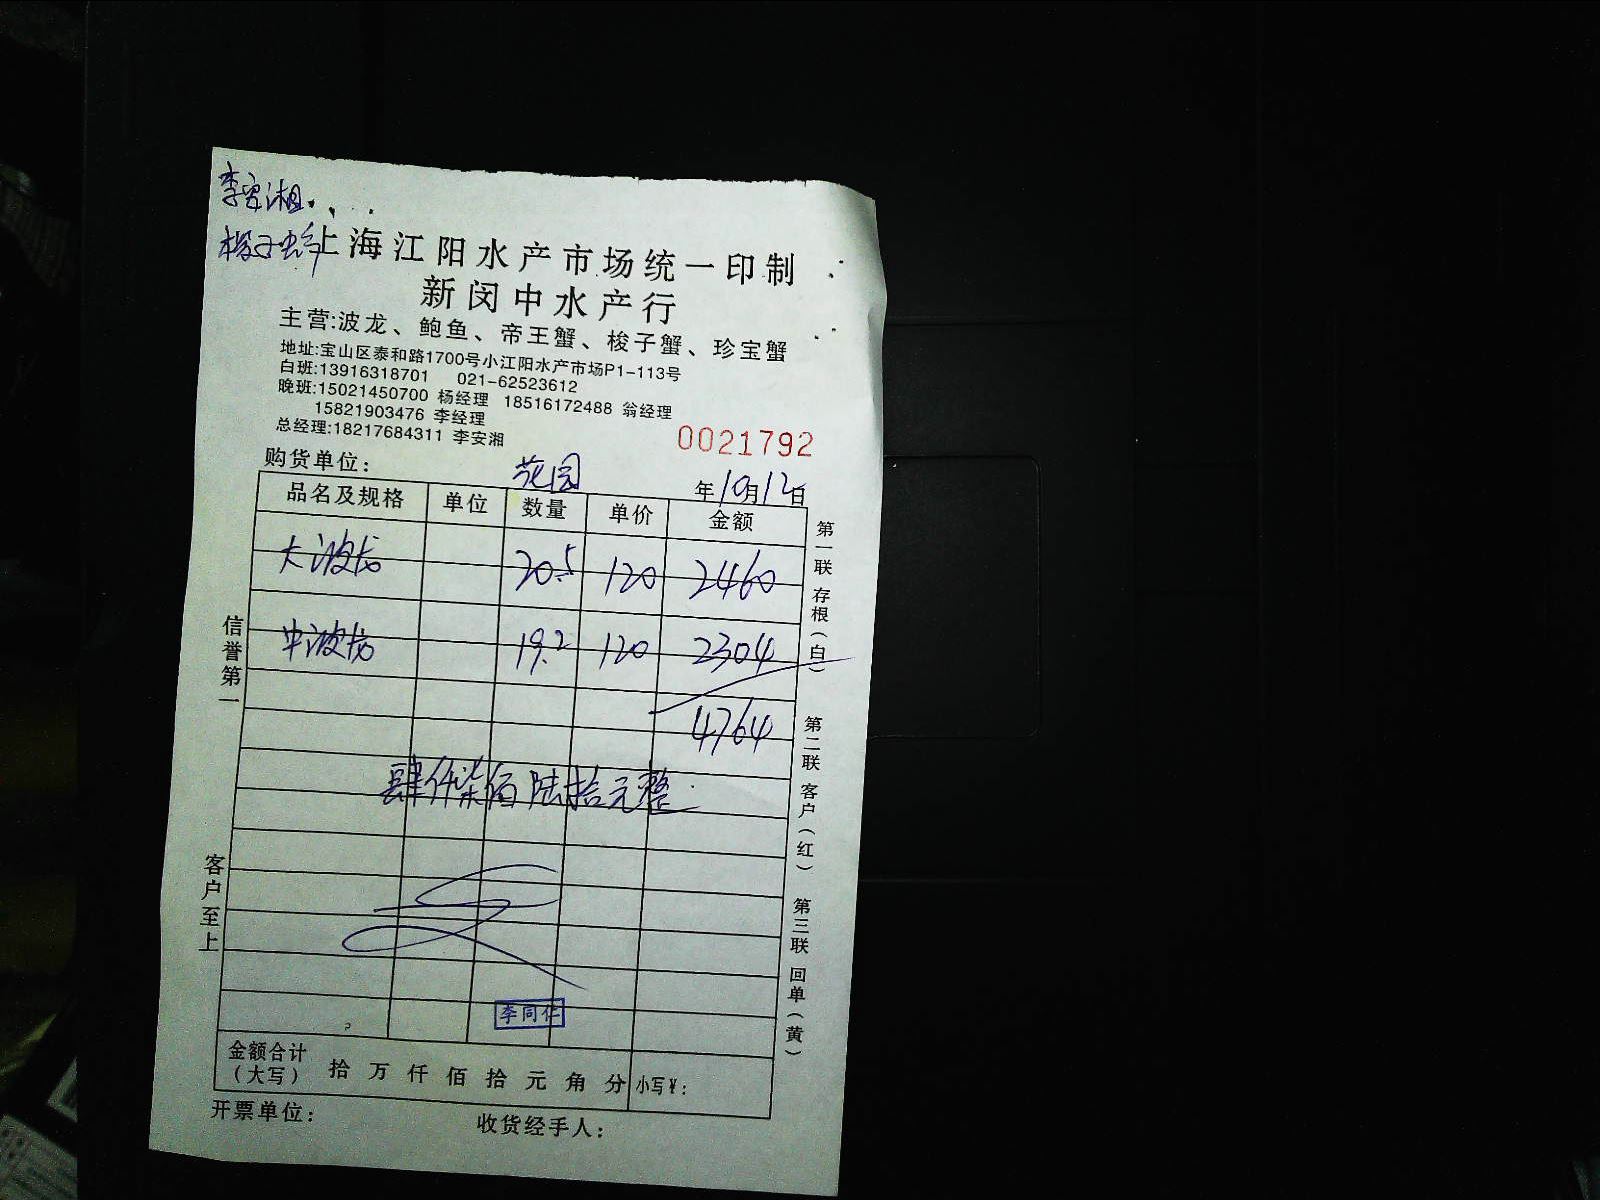 李安湘
梭子蟹
上海江阳水产市场统一印制
新闵中水产行
主营:波龙、鲍鱼、帝王蟹、梭子蟹、珍宝蟹
地址:宝山区泰和路1700号小江阳水产市场P1-113号
白班:13916318701 021-62523612
晚班:15021450700 杨经理 18516172488 翁经理
15821903476 李经理
总经理:18217684311 李安湘
0021792
购货单位: 花园 年10月12日
品名及规格 单位 数量 单价 金额
大波龙 20.5 120 2460
中波龙 19.2 120 2304
4764
肆仟柒佰陆拾元整
李同仁
金额合计
(大写) 拾 万 仟 佰 拾 元 角 分 小写¥:
开票单位: 收货经手人:
信誉第一
客户至上
第一联 存根(白)
第二联 客户(红)
第三联 回单(黄)